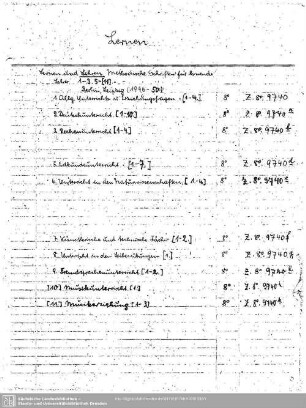 Lernen
Lernen und Lehren. Methodische Schriften für lernende
Lehrer. 1-3.5-[11].
Berlin, Leipzig (1946-50)
1. Allg. Unterrichts- u. Erziehungsfragen. [1-4.] 8° Z. 8°. 9740
2. Deutschunterricht [1-10.] 8° Z. 8°. 9740
3. Rechenunterricht [1-4] 8° Z. 8°. 9740
5. Erdkundeunterricht. [1-7.] 8° Z. 8°. 9740
6. Unterricht in den Naturwissenschaften. [1-4] 8° Z. 8°. 9740
7. Künstlerische und technische Fächer [1-2.] 8° Z. 8°. 9740
8. Unterricht in den Leibesübungen [1.] 8° Z. 8°. 9740
9. Fremdsprachenunterricht [1-2.] 8° Z. 8°. 9740
[10] Musikunterricht [1.] 8° Z. 8°. 9740
[11] Musikerziehung [1-3] 8° Z. 8°. 9740
Sächsische Landesbibliothek -
Staats- und Universitätsbibliothek Dresden